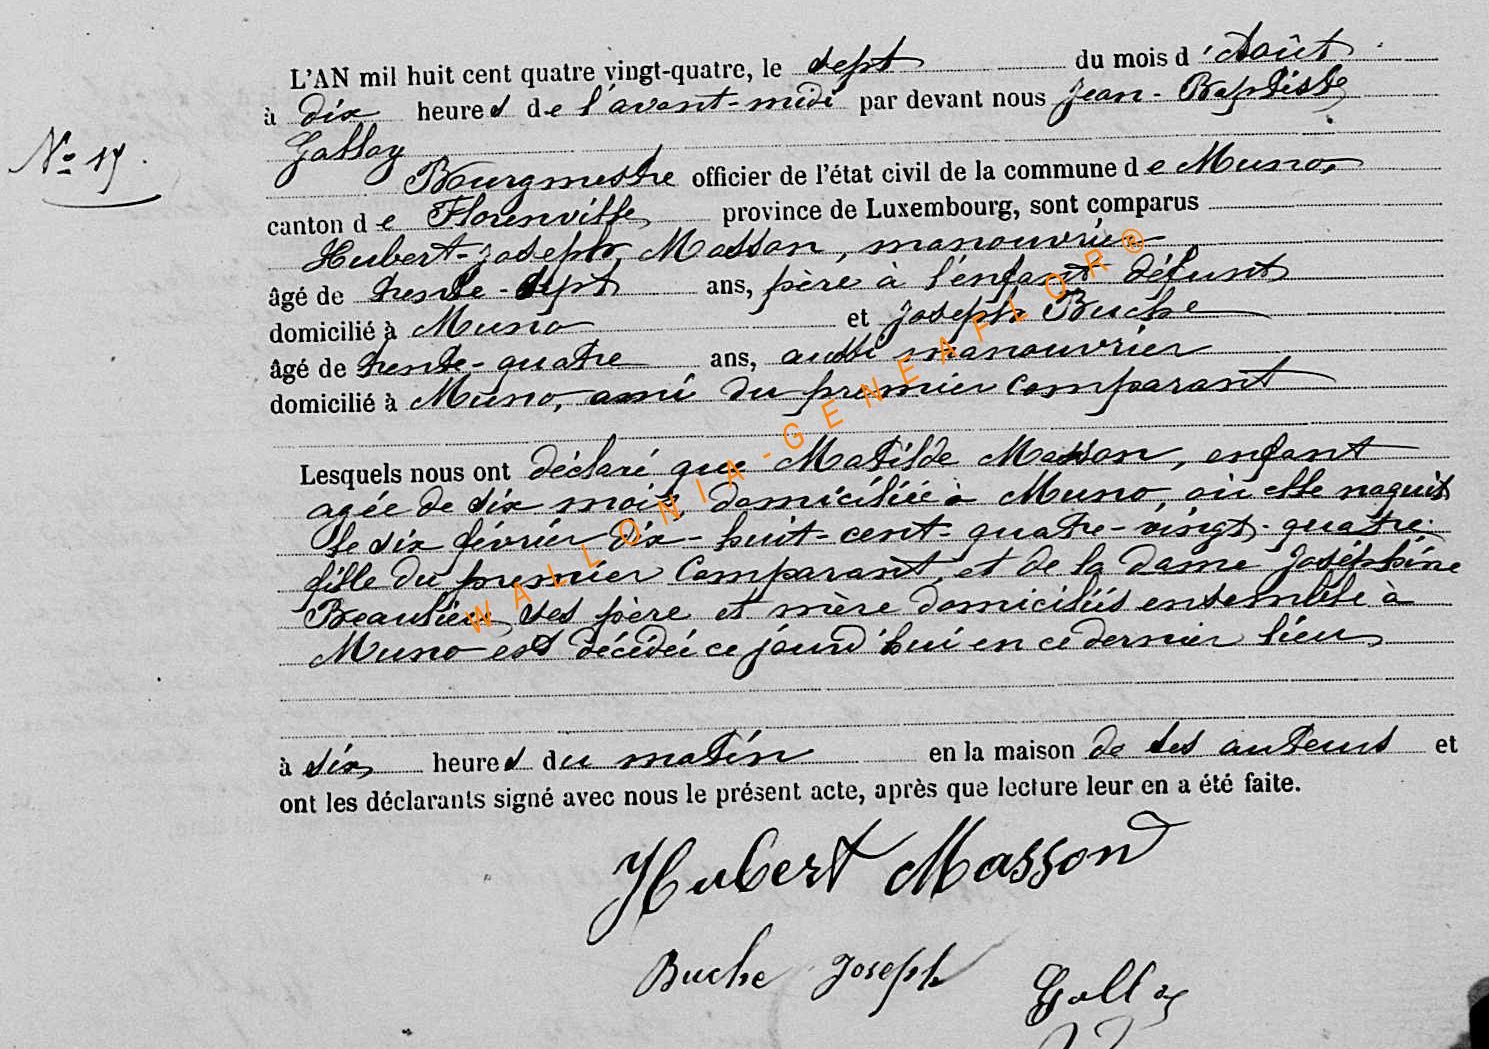 L'AN mil huit cent quatre vingt-quatre, le sept du mois d'Août
à dix heures de l'avant-midi par devant nous Jean-Baptiste
Nº 17.
Galloy
Bourgmestre officier de l'état civil de la commune de Muno,
canton de Florenville province de Luxembourg, sont comparus
Hubert-Joseph Masson, manouvrier
âgé de trente-sept ans, père à l'enfant défunt
domicilié à Muno et Joseph Buche
âgé de trente-quatre ans, aussi manouvrier
domicilié à Muno, ami du premier comparant
Lesquels nous ont déclaré que Matilde Masson, enfant
agée de six mois, domiciliée à Muno où elle naquit
le six février dix-huit-cent-quatre-vingt-quatre.
fille du premier Comparant, et de la dame Joséphine
Beaulieu, ses père et mère domiciliés ensemble à
Muno est décédée ce jourd'hui en ce dernier lieu
à six heures du matin en la maison de ses auteurs et
ont les déclarants signé avec nous le présent acte, après que lecture leur en a été faite.
Hubert Masson
Buche Joseph Galloy
WALLONIA-GENEAFLOR®